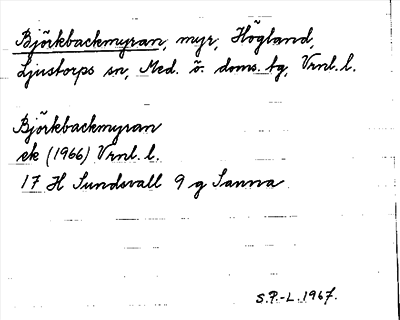 Björkbackmyran, myr, Högland,
Ljustorps sn, Med. ö. doms. tg, Vrnl. l.
Björkbackmyran
ek (1966) Vrnl. l.
17 H Sundsvall 9 g Sanna
S.P.-L. 1967.